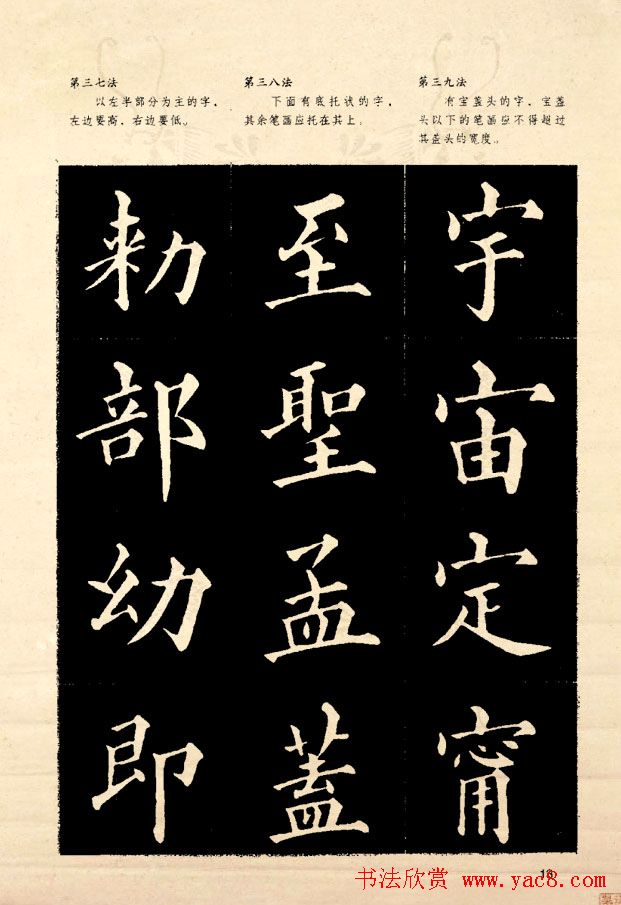 第三七法
以左半部分为主的字，
左边要高，右边要低。
第三八法
下面有底托状的字，
其余笔画应托在其上。
第三九法
有宝盖头的字，宝盖
头以下的笔画应不得超过
其盖头的宽度。
宇
宙
定
甯
至
聖
孟
蓋
勑
部
幼
即
书法欣赏 www.yac8.com